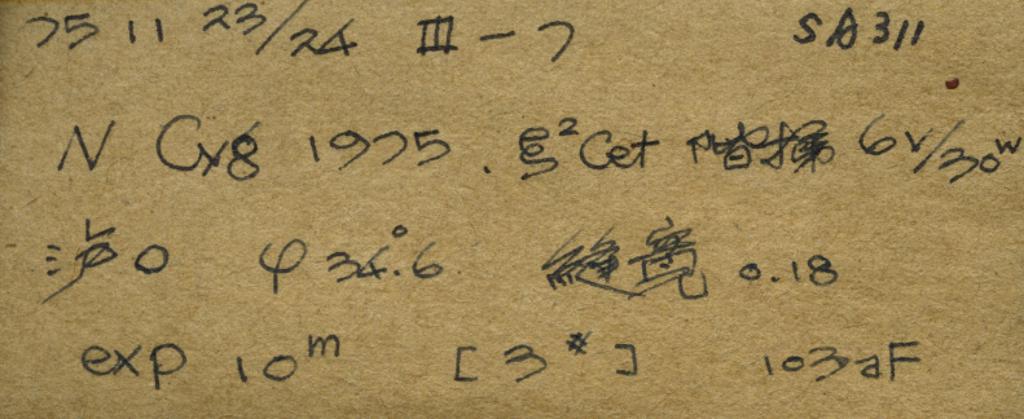 75 11 23/24 Ⅲ-7 SA311
N Cyg 1975. ξ²Cet 階梯 6V/30W
滤0 φ34°.6 縫寬 0.18
exp 10ᵐ [3*] 103aF